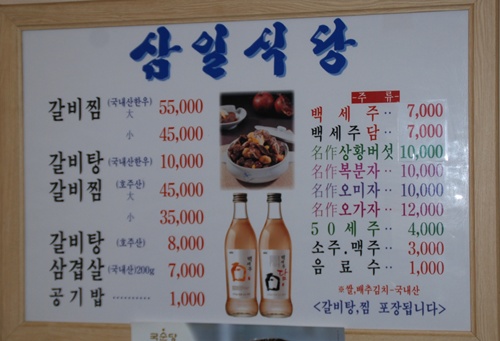 삼일식당
갈비찜 (국내산한우) 大 55,000
小 45,000
갈비탕 (국내산한우) 10,000
갈비찜 (호주산) 大 45,000
小 35,000
갈비탕 (호주산) 8,000
삼겹살 (국내산)200g 7,000
공기밥 ·········· 1,000
-주 류-
백세주·· 7,000
백세주담·· 7,000
名作상황버섯 10,000
名作복분자·· 10,000
名作오미자·· 10,000
名作오가자·· 12,000
50세주·· 4,000
소주.맥주·· 3,000
음료수·· 1,000
※쌀,배추김치-국내산
<갈비탕,찜 포장됩니다>
국순당